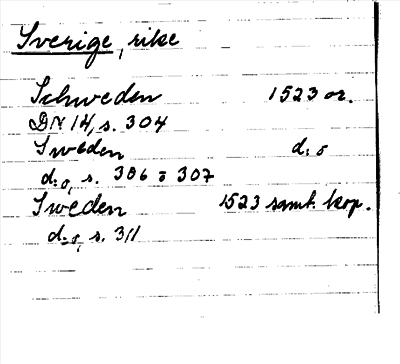 Sverige, rike
Schweden 1523 or.
DN 14, s. 304
Sweden d:o
d:o, s. 306 = 307
Sweden 1523 samt. kop.
d:o, s. 311